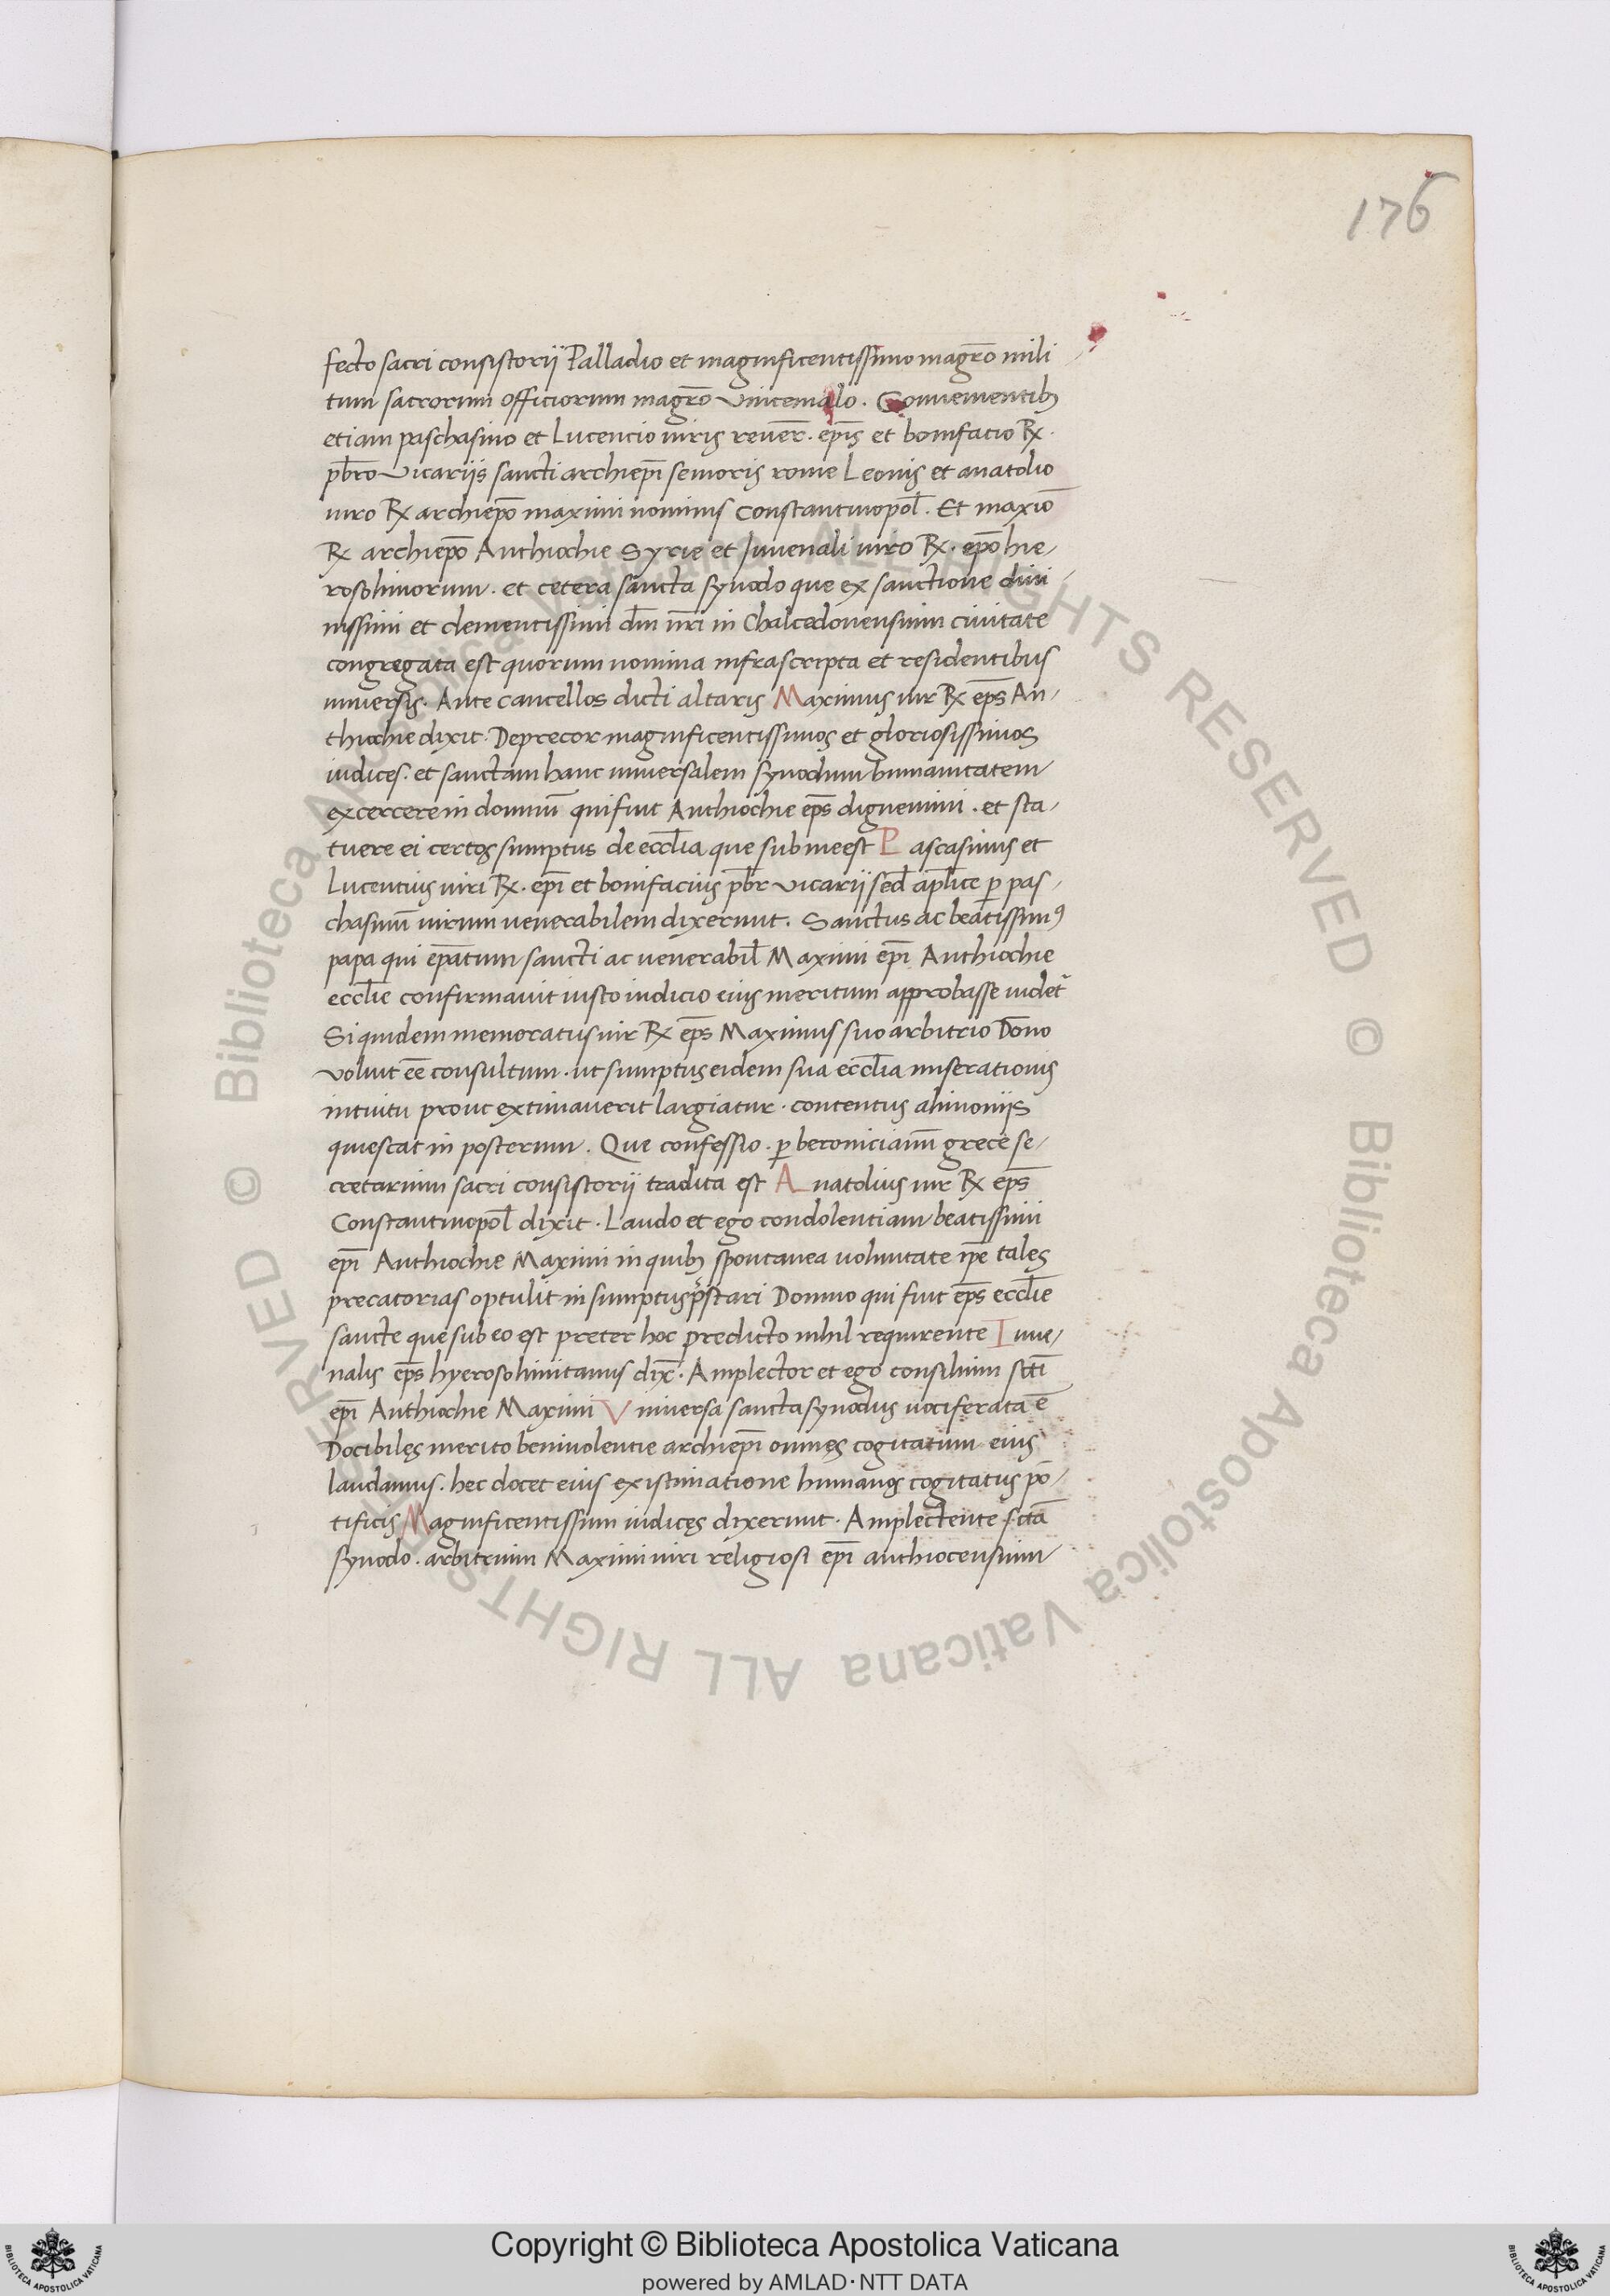 176
fecto sacri consistorii Palladio et magnificentissimo magr̄o mili
tum sacrorum officiorum magr̄o Vincemalo. Convenientibꝫ
etiam paschasino et Lucencio viris reuer̄. ep̄is et bonifacio ℞.
pb̄ro Vicariis sancti archiep̄i senioris rome Leonis et anatolio
uiro ℞ archiep̄o maximi nominis Constantinopol̄. Et maxiō
℞ archiep̄o Anthiochie Syrie et Juvenali uiro ℞. ep̄o hie
rosolimorum. et cetera sancta synodo que ex sanctione diui
nissimi et clementissimi dn̄i nr̄i in Chalcedonensium ciuitate
congregata est quorum nomina infrascripta et residentibus
uniuersis. Ante cancellos dicti altaris Maximus uir ℞ ep̄s An
thiochie dixit. Deprecor magnificentissimos et gloriosissimos
iudices. et sanctam hanc uniuersalem synodum humanitatem
excercere in domnū qui fuit Anthiochie ep̄s dignemini. et sta
tuere ei certos sumptus de eccl̄ia que sub me est Pascasinus et
Lucentius uiri ℞. ep̄i et bonifacius pb̄r vicarii sed̄ apl̄ice ꝑ pas
chasinū uirum uenerabilem dixerunt. Sanctus ac beatissimꝰ
papa qui ep̄atum sancti ac uenerabil̄ Maximi ep̄i Anthiochie
eccl̄ie confirmauit iusto iudicio eius meritum approbasse uidet᷑
Siquidem memoratus uir ℞ ep̄s Maximus suo arbitrio Dōno
voluit eē consultum. ut sumptus eidem sua eccl̄ia miserationis
intuitu prout extimauerit largiatur. contentus alimoniis
quiescat in posterum. Que confessio. ꝑ beronicianū grece se
cretarium sacri consistorii tradita est Anatolius uir ℞ ep̄s
Constantinopol̄ dixit. Laudo et ego condolentiam beatissimi
ep̄i Anthiochie Maximi in quibꝫ spontanea uoluntate ip̄e tales
precatorias optulit in sumptus p̄stari Domno qui fuit ep̄s eccl̄ie
sancte que sub eo est preter hoc predicto nihil requirente Iuue
nalis ep̄s hyerosolimitanus dix̄. Amplector et ego consilium sc̄ti
ep̄i Anthiochie Maximi Vniuersa sancta synodus uociferata ē
Docibiles merito beniuolentie archiep̄i omnes cogitatum eius
laudamus. hec docet eius existimatione humanos cogitatus pō
tificis Magnificentissimi iudices dixerunt. Amplectente sc̄tā
synodo. arbitrium Maximi uiri religiosi ep̄i anthiocensium
Copyright © Biblioteca Apostolica Vaticana
powered by AMLAD·NTT DATA